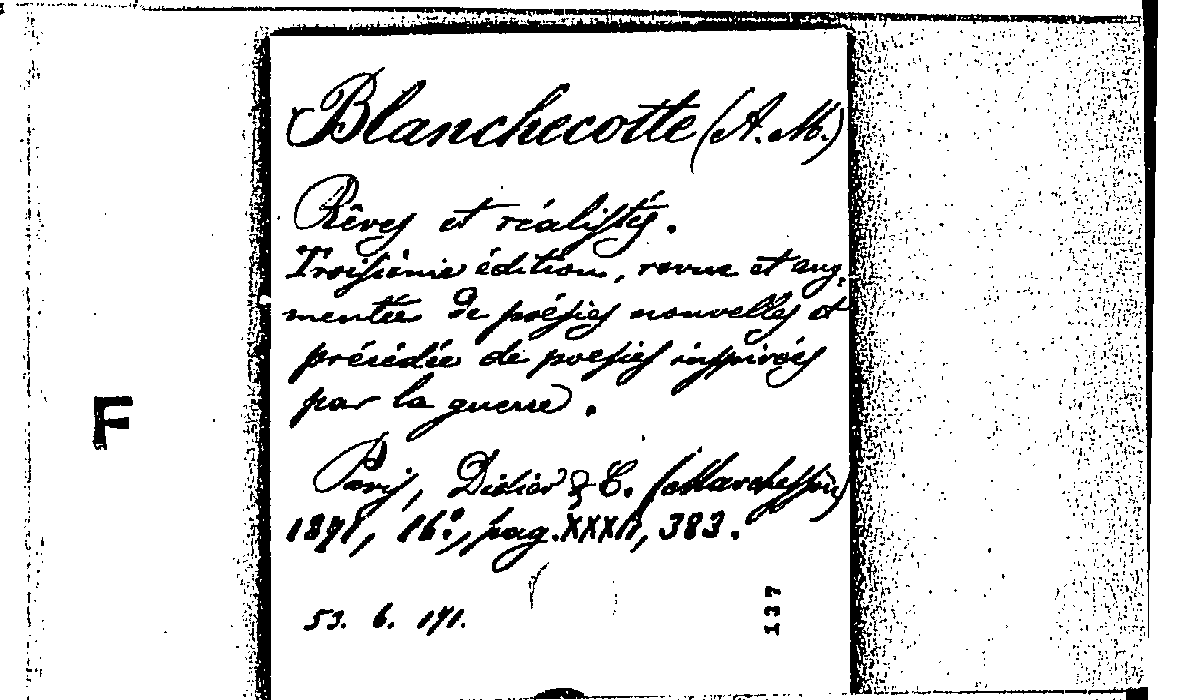 Blanchecotte (A. M.)
Rêves et réalités.
Troisième édition, revue et aug-
mentée de poésies nouvelles et
précédée de poesies inspirées
par la guerre.
F
Paris, Didier & C. (Marchessou)
1871, 16º, pag. XXXII, 383.
53. 6. 171.
137